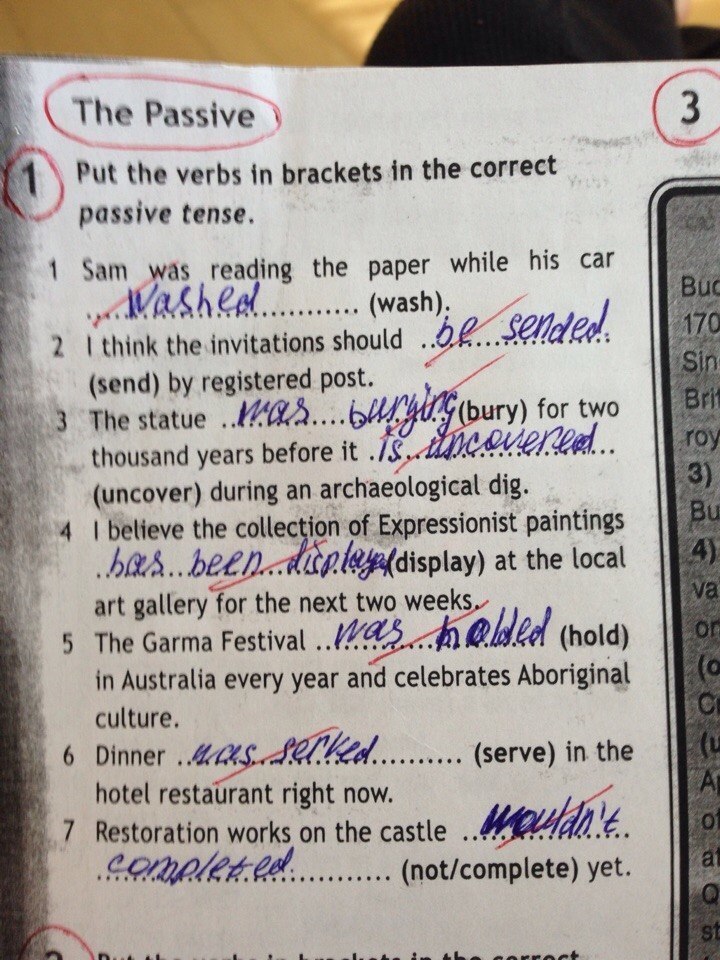 The Passive
3
1 Put the verbs in brackets in the correct
passive tense.
1 Sam was reading the paper while his car
....washed............ (wash).
2 I think the invitations should ..be sended.
(send) by registered post.
3 The statue ..was....burying (bury) for two
thousand years before it .is..uncovered...
(uncover) during an archaeological dig.
4 I believe the collection of Expressionist paintings
..has...been...display (display) at the local
art gallery for the next two weeks.
5 The Garma Festival ..was holded (hold)
in Australia every year and celebrates Aboriginal
culture.
6 Dinner ..was served.......... (serve) in the
hotel restaurant right now.
7 Restoration works on the castle ..wouldn't..
.completed............ (not/complete) yet.
Put the verbs in brackets in the correct
Buc
170
Sin
Brit
roy
3)
Bu
4)
va
or
(o
C
(u
A
of
at
Q
st